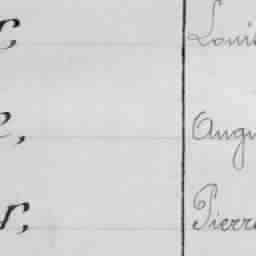 c, Louis
e, Augu
r, Pierre